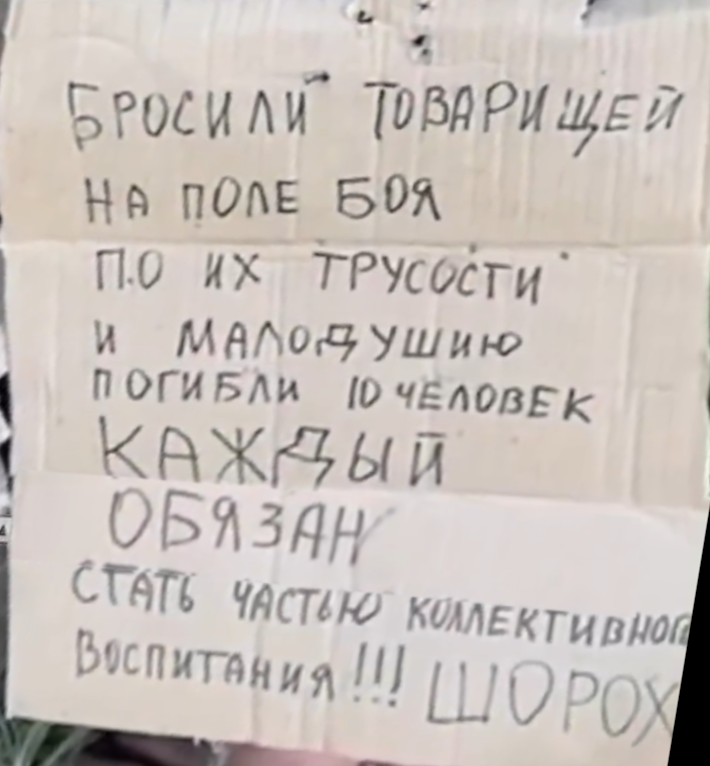 БРОСИЛИ ТОВАРИЩЕЙ
НА ПОЛЕ БОЯ
П.О ИХ ТРУСОСТИ
И МАЛОДУШИЮ
ПОГИБЛИ 10 ЧЕЛОВЕК
КАЖДЫЙ
ОБЯЗАН
СТАТЬ ЧАСТЬЮ КОЛЛЕКТИВНОГО
ВОСПИТАНИЯ!!! ШОРОХ